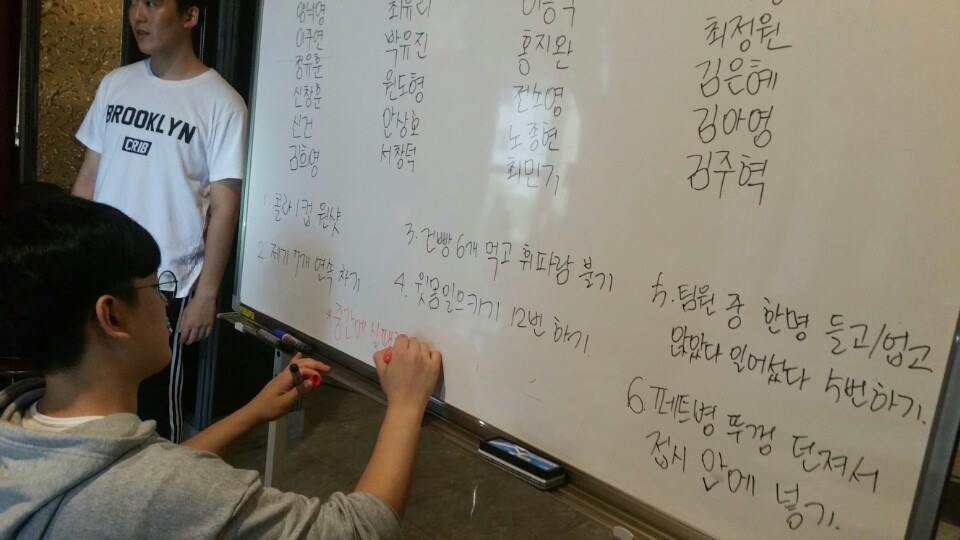 BROOKLYN
CRIB
이주연
정유훈
신창훈
신건
김효영
최유리
박유진
원도형
안상호
서창덕
홍지완
전소영
노종현
최민기
최정원
김은혜
김아영
김주혁
1. 콜라 1컵 원샷
2. 제기 7개 연속 차기
3. 건빵 6개 먹고 휘파람 불기
4. 윗몸일으키기 12번 하기.
5. 팀원 중 한명 들고/업고
앉았다 일어섰다 5번하기.
6. 페트병 뚜껑 던져서
접시 안에 넣기.
*중간에 실패